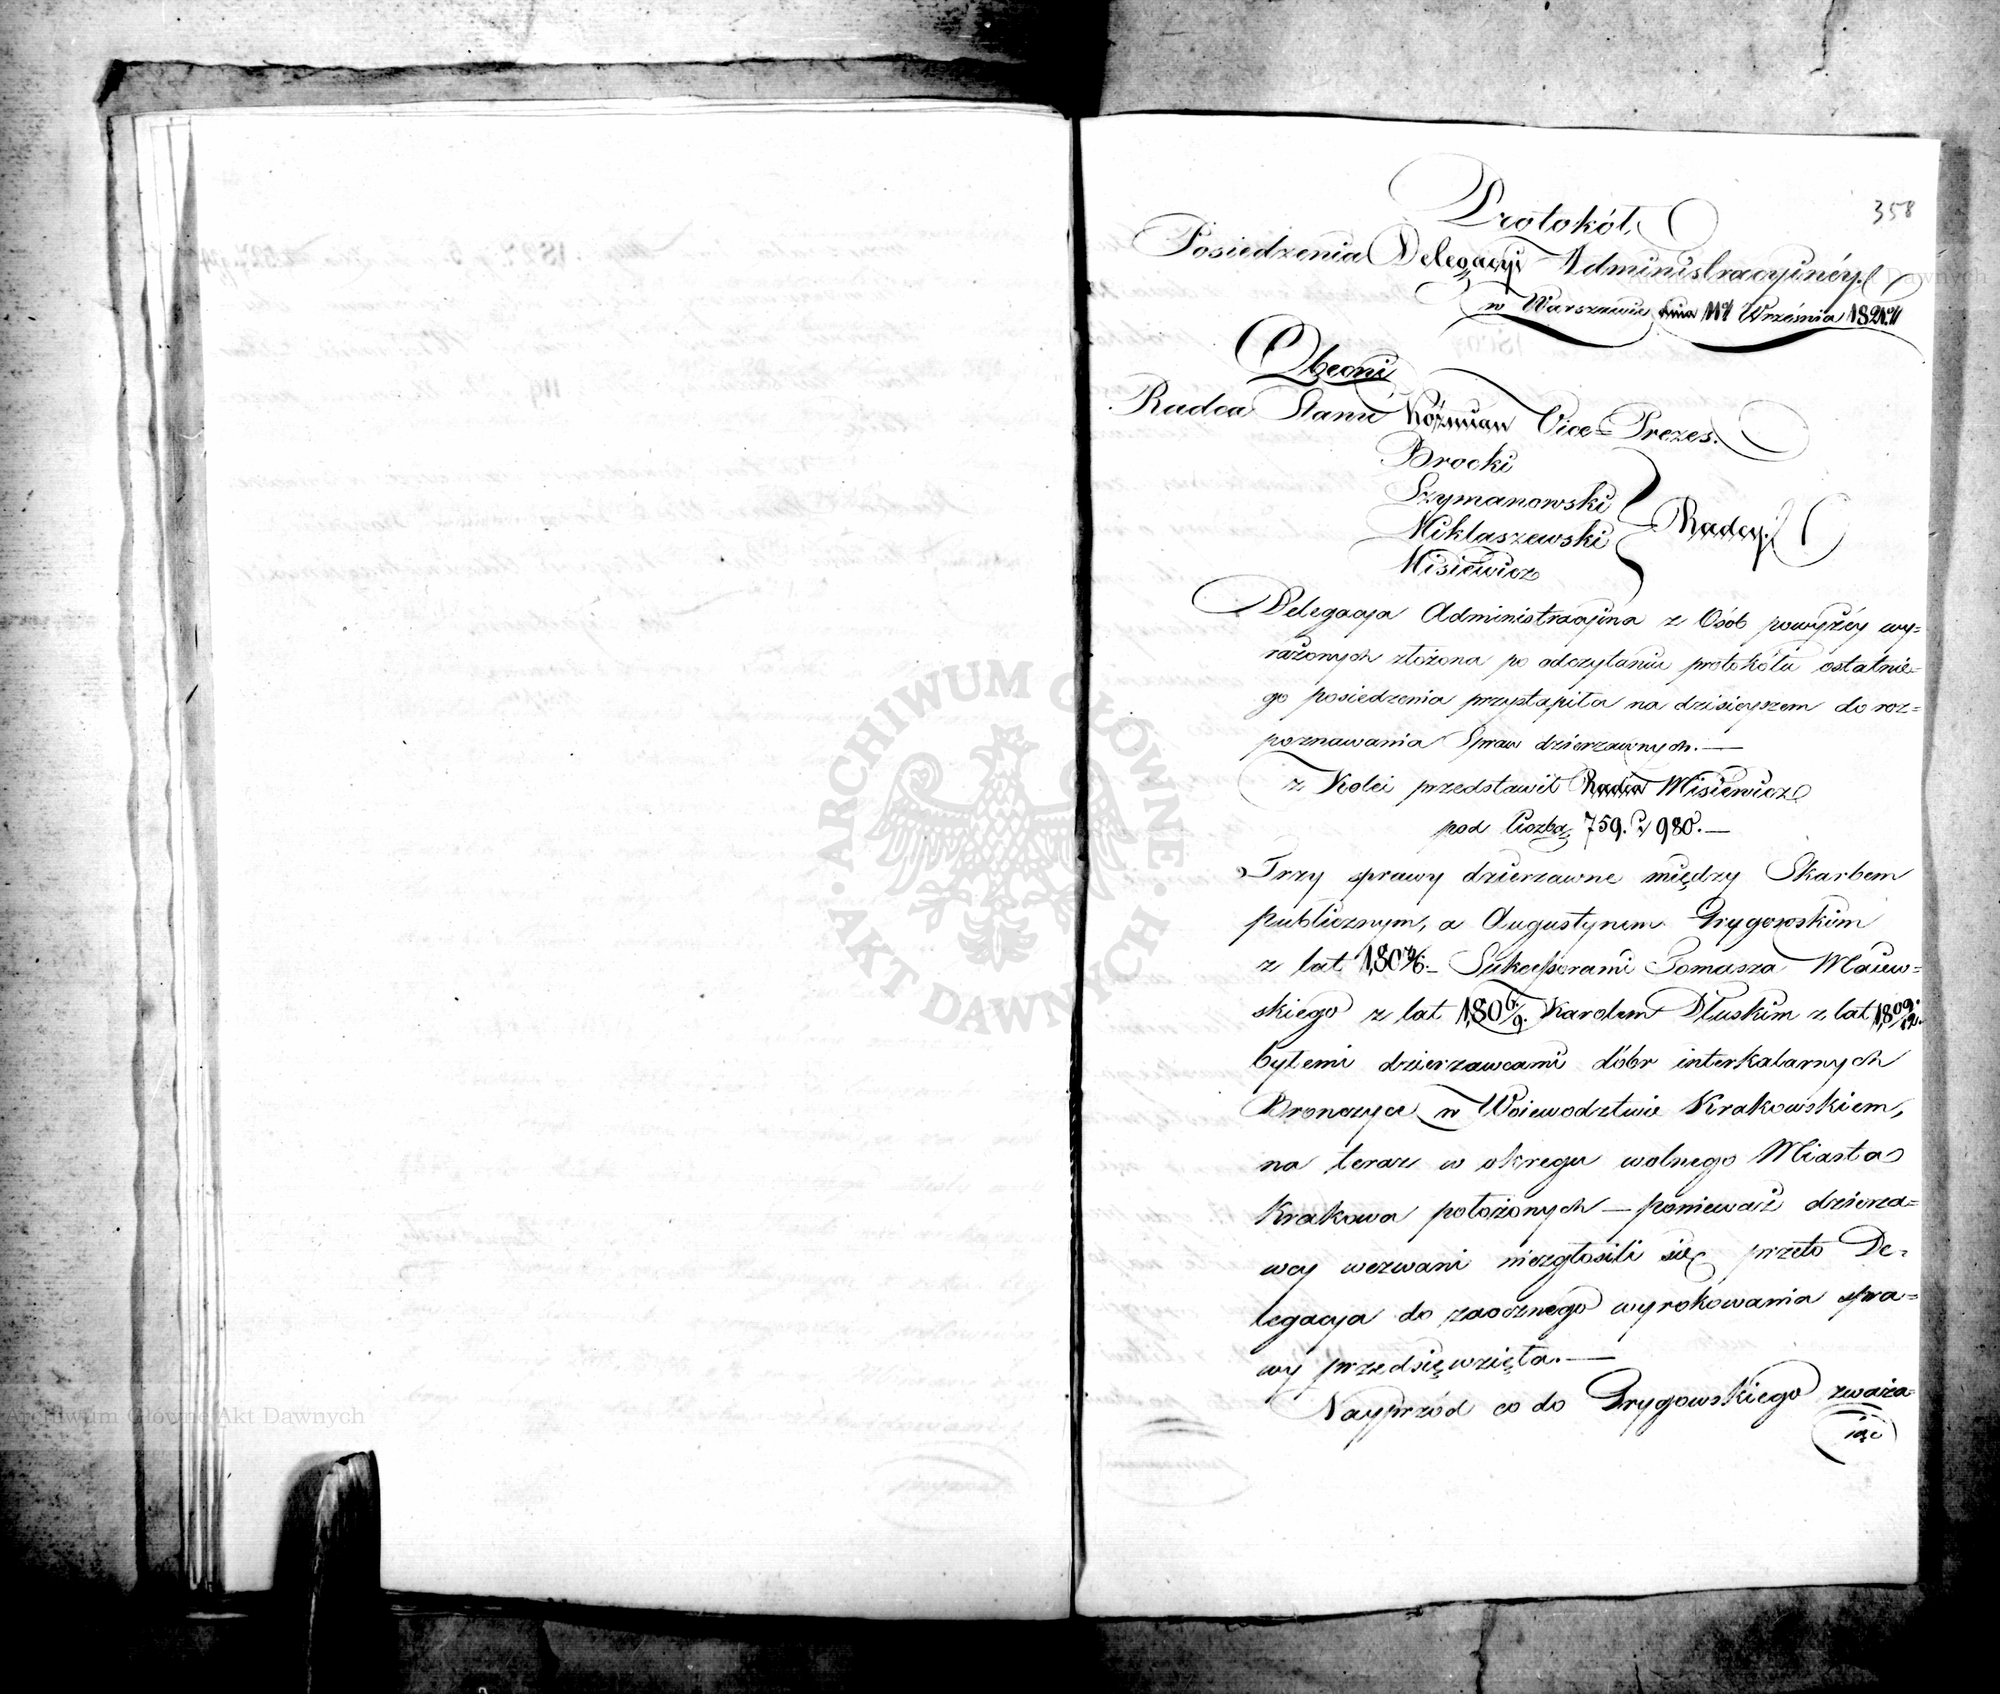 358
Protokół
Posiedzenia Delegacyi Administracyinéy
w Warszawie dnia 11go Września 182
Obecni
Radca Stanu Koźmian Vice-Prezes.
Brocki
Szymanowski
Miklaszewski
Misiewicz
Radcy.
Delegacya Administracyina z Osób powyżéy wy=
rażonych złożona po odczytaniu protokółu ostatnie=
go posiedzenia przystąpiła na dzisieyszem do roz=
poznawania Spraw dzierzawnych.—
z Kolei przedstawił Radca Misiewicz
pod liczbą 759. i 980.—
Trzy sprawy dzierzawne między Skarbem
publicznym, a Augustynem Grygowskim
z lat 180 Sukcessorami Tomasza Maiew=
skiego z lat 1806/9. Karolem Dłuskim z lat 1809/12.
byłemi dzierzawcami dóbr interkalarnych
Bronczyce w Woiewodztwie Krakowskiem,
na teraz w okręgu wolnego Miasta
Krakowa położonych — ponieważ dzierza=
wcy wezwani niezgłosili się przeto De=
legacya do zaocznego wyrokowania spra=
wy przedsięwzięła.—
Nayprzód co do Grygowskiego zważa=
iąc
ARCHIWUM GŁÓWNE AKT DAWNYCH
Archiwum Główne Akt Dawnych